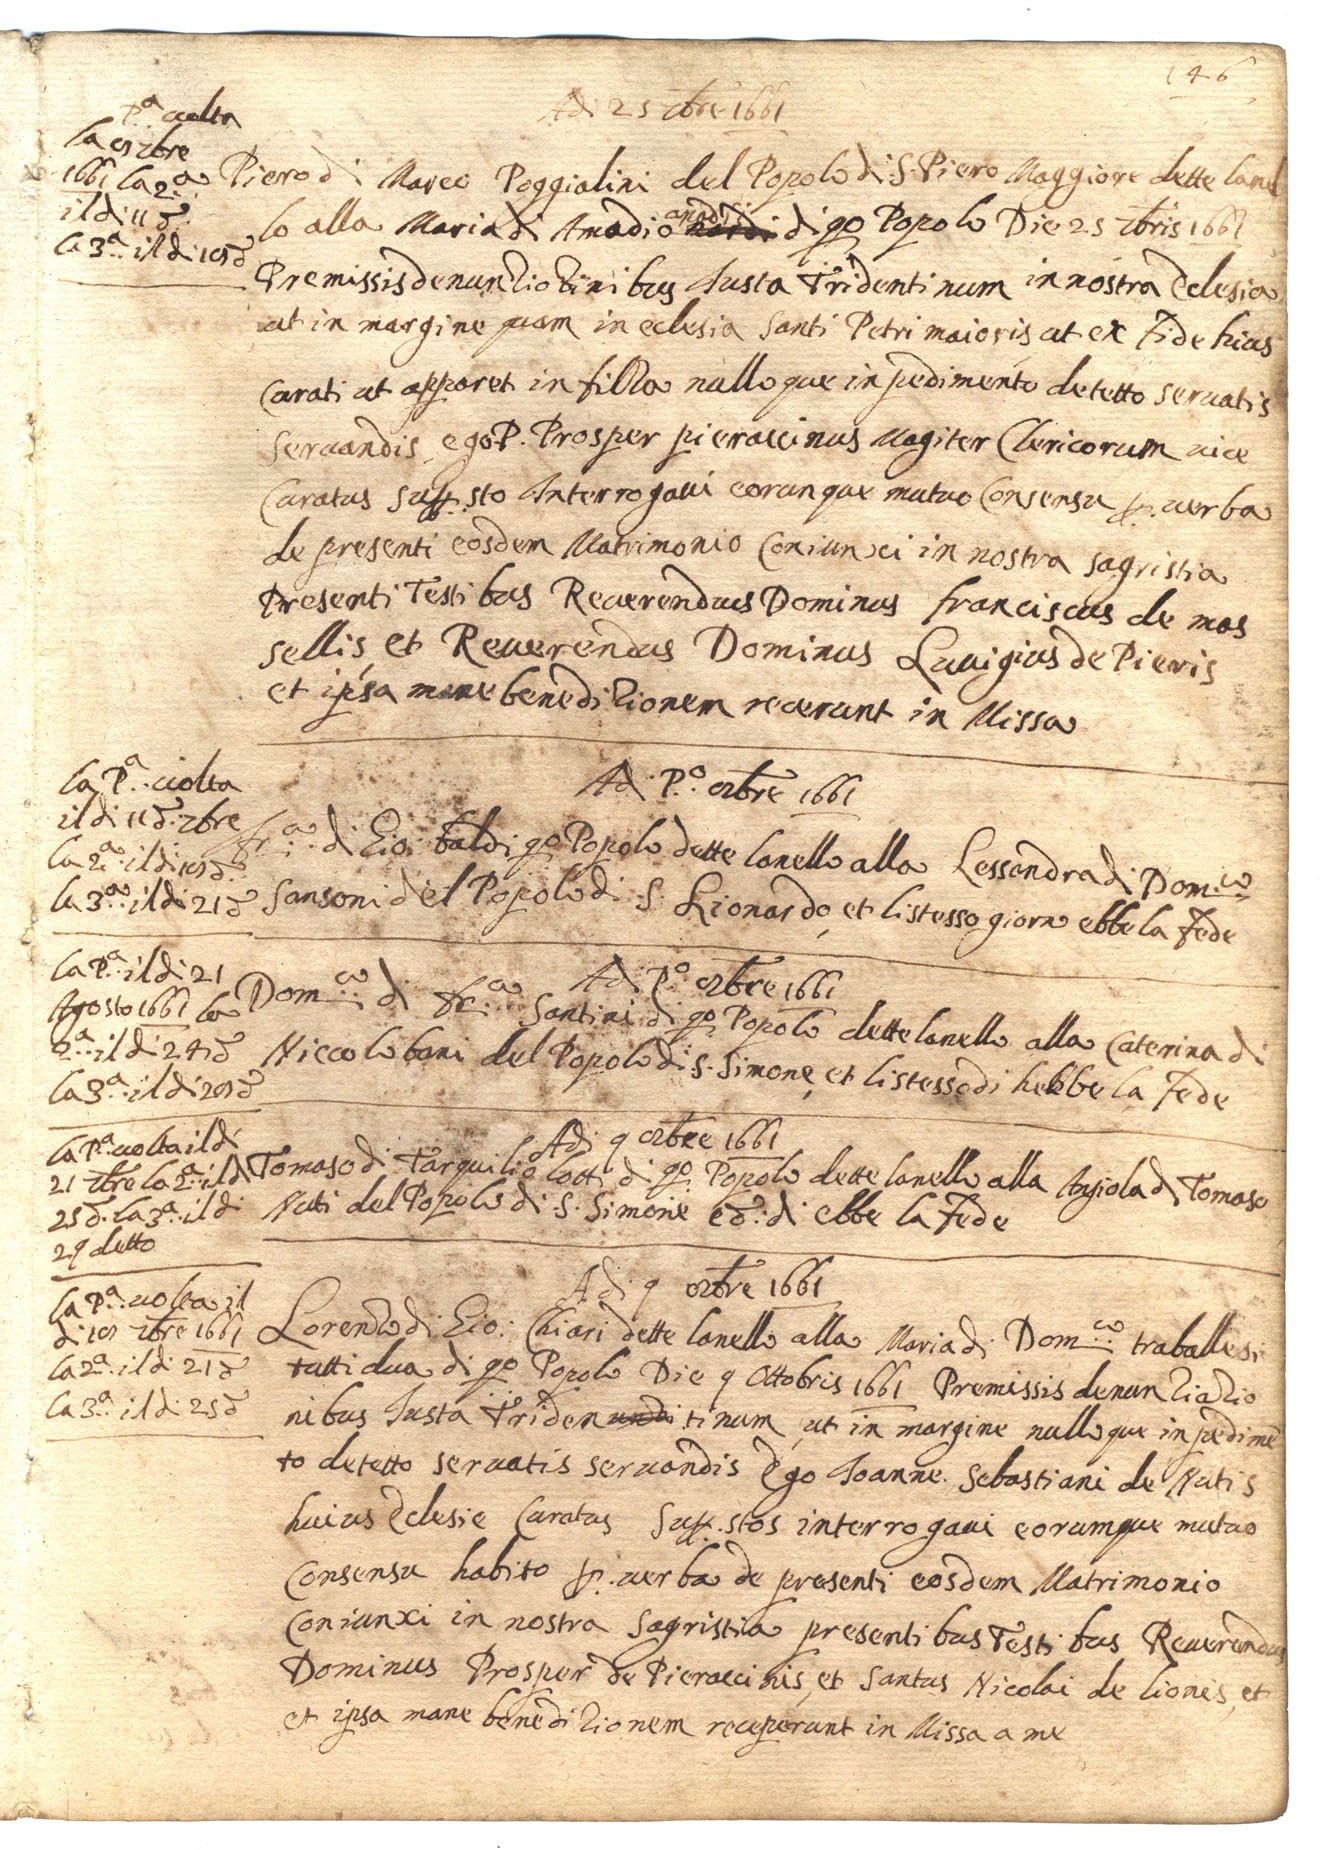 146
Adi 25 7bre 1661
P.a uolta
la 8 7bre
1661 la 2.a
il di 11 d.o
la 3.a il di 18 d.o
Piero di Marco Poggialini del Popolo di S. Piero Maggiore dette lanel
lo alla Maria di Amadio di q.o Popolo Die 25 7bris 1661
Premissis denunziozinibus Iusta Tridentinum in nostra Eclesia
ut in margine quam in eclesia Santi Petri maioris ut ex Fide huius
Curati ut apparet in filza nulloque inpedimento detetto seruatis
seruandis ego P. Prosper pieraccinus Magiter Clericorum uice
Curatus supp.sto Interrogaui eorunque mutuo Consensu p. uerba
de presenti eosdem Matrimonio Coniunxi in nostra sagristia
Presenti Testibus Reuerendus Dominus franciscus de mos
sellis et Reuerendus Dominus Luuigius de Pieris
et ipsa mane benedizionem recerunt in Missa
la P.a uolta
il di 11 d.o 7bre
la 2.a il di 18 d.o
la 3.a il di 21 d.o
Adi P.o 8bre 1661
fr.a di Gio: baldi q.o Popolo dette lanello alla Lessandra di Dom.co
Sansoni del Popolo di S. Lionardo, et listesso giorn ebbe la Fede
la P.a il di 21
Agosto 1661 la
2.a il di 24 d.o
la 3.a il di 28 d.o
Adi P.o 8bre 1661
Dom.co di fr.a Santini di q.o Popolo dette lanello alla Caterina di
Niccolo bani del Popolo di S. Simone, et listesso di hebbe la Fede
la P.a uolta il di
21 7bre la 2.a il di
25 d.o la 3.a il di
29 detto
Adi 9 8bre 1661
Tomaso di Tarquilio lotti di q.o Popolo dette lanello alla Angiola di Tomaso
Nuti del Popolo di S. Simone e d.o di ebbe la Fede
la P.a uolta il
di 18 7bre 1661
la 2.a il di 21 d.o
la 3.a il di 25 d.o
Adi 9 8bre 1661
Lorenzo di Gio: Chiari dette lanello alla Maria di Dom.co traballesi
tutti dua di q.o Popolo Die 9 Ottobris 1661 Premissis denunziazio
nibus Iusta Tridentinum, ut in margine nulloque inpedimē
to detetto seruatis seruandis Ego Ioanne. Sebastiani de Nutis
huius Eclesie Curatus supp.stos interrogaui eorumque mutuo
Consensu habito p. uerba de presenti eosdem Matrimonio
Coniunxi in nostra sagristia presentibus Testibus Reuerendus
Dominus Prosper de Pieraccinis, et Santus Nicolai de lionis, et
et ipsa mane benedizionem receperunt in Missa a me